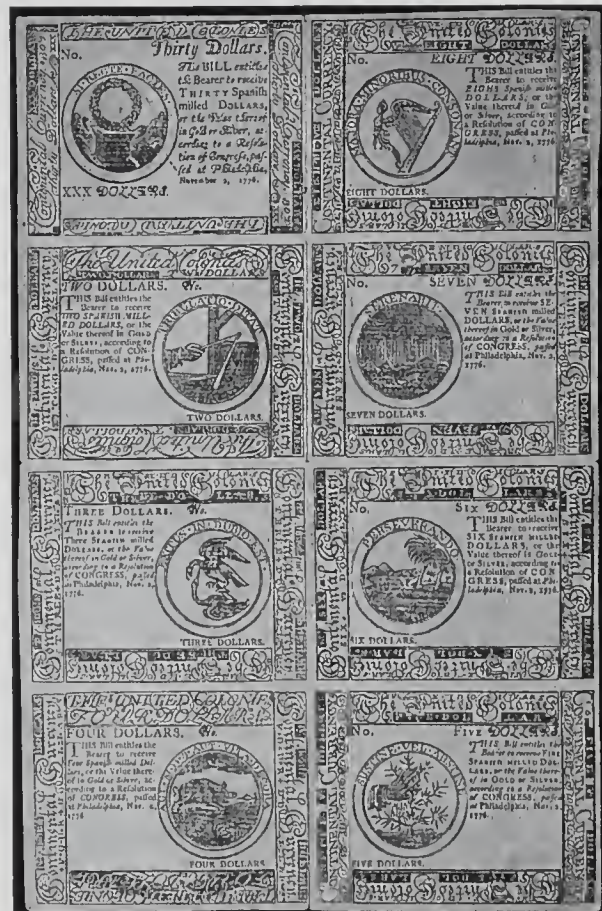 THE UNITED COLONIES
Thirty Dollars.
No.
THIS BILL entitles
the Bearer to receive
THIRTY Spanish
milled DOLLARS,
or the Value thereof
in Gold or Silver, ac-
cording to a Resolu-
tion of Congress, pas-
sed at Philadelphia,
November 2, 1776.
XXX DOLLARS.
The United Colonies
EIGHT DOLLARS
No. EIGHT DOLLARS.
THIS Bill entitles the
Bearer to receive
EIGHT Spanish milled
DOLLARS, or the
Value thereof in Gold
or Silver, according to
a Resolution of CON-
GRESS, passed at Phi-
ladelphia, Nov. 2, 1776.
MAJORA MINORIBUS CONSONANT
EIGHT DOLLARS.
The United Colonies
TWO DOLLARS
TWO DOLLARS. No.
THIS Bill entitles the
Bearer to receive
TWO SPANISH MILL-
ED DOLLARS, or the
Value thereof in GOLD
or SILVER, according to
a Resolution of CON-
GRESS, passed at Phi-
ladelphia, Nov. 2, 1776.
TRIBULATIO DITAT
TWO DOLLARS.
The United Colonies
SEVEN DOLLARS
No. SEVEN DOLLARS.
THIS Bill entitles the
Bearer to receive SE-
VEN SPANISH milled
DOLLARS, or the Value
thereof in Gold or Silver,
according to a Resolution
of CONGRESS, passed
at Philadelphia, Nov. 2,
1776.
SERENABIT
SEVEN DOLLARS.
The United Colonies
THREE DOLLARS. No.
THIS Bill entitles the
BEARER to receive
Three SPANISH milled
DOLLARS, or the Value
thereof in Gold or Silver,
according to a Resolution
of CONGRESS, passed
at Philadelphia, Nov. 2,
1776.
EXITUS IN DUBIO EST
THREE DOLLARS.
The United Colonies
No. SIX DOLLARS.
THIS Bill entitles the
Bearer to receive
SIX SPANISH MILLED
DOLLARS, or the
Value thereof in GOLD
or SILVER, according to
a Resolution of CON-
GRESS, passed at Phi-
ladelphia, Nov. 2, 1776.
PERSEVERANDO
SIX DOLLARS.
THE UNITED COLONIES
FOUR DOLLARS
FOUR DOLLARS. No.
THIS Bill entitles the
Bearer to receive
Four Spanish milled Dol-
lars, or the Value there-
of in GOLD or SILVER, ac-
cording to a Resolution
of CONGRESS, passed
at Philadelphia, Nov. 2,
1776.
FOUR DOLLARS
The United Colonies
No. FIVE DOLLARS.
THIS Bill entitles the
Bearer to receive FIVE
SPANISH milled DOL-
LARS, or the Value there-
of in GOLD or SILVER,
according to a Resolution
of CONGRESS, passed
at Philadelphia, Nov. 2,
1776.
SUSTINE VEL ABSTINE
FIVE DOLLARS.